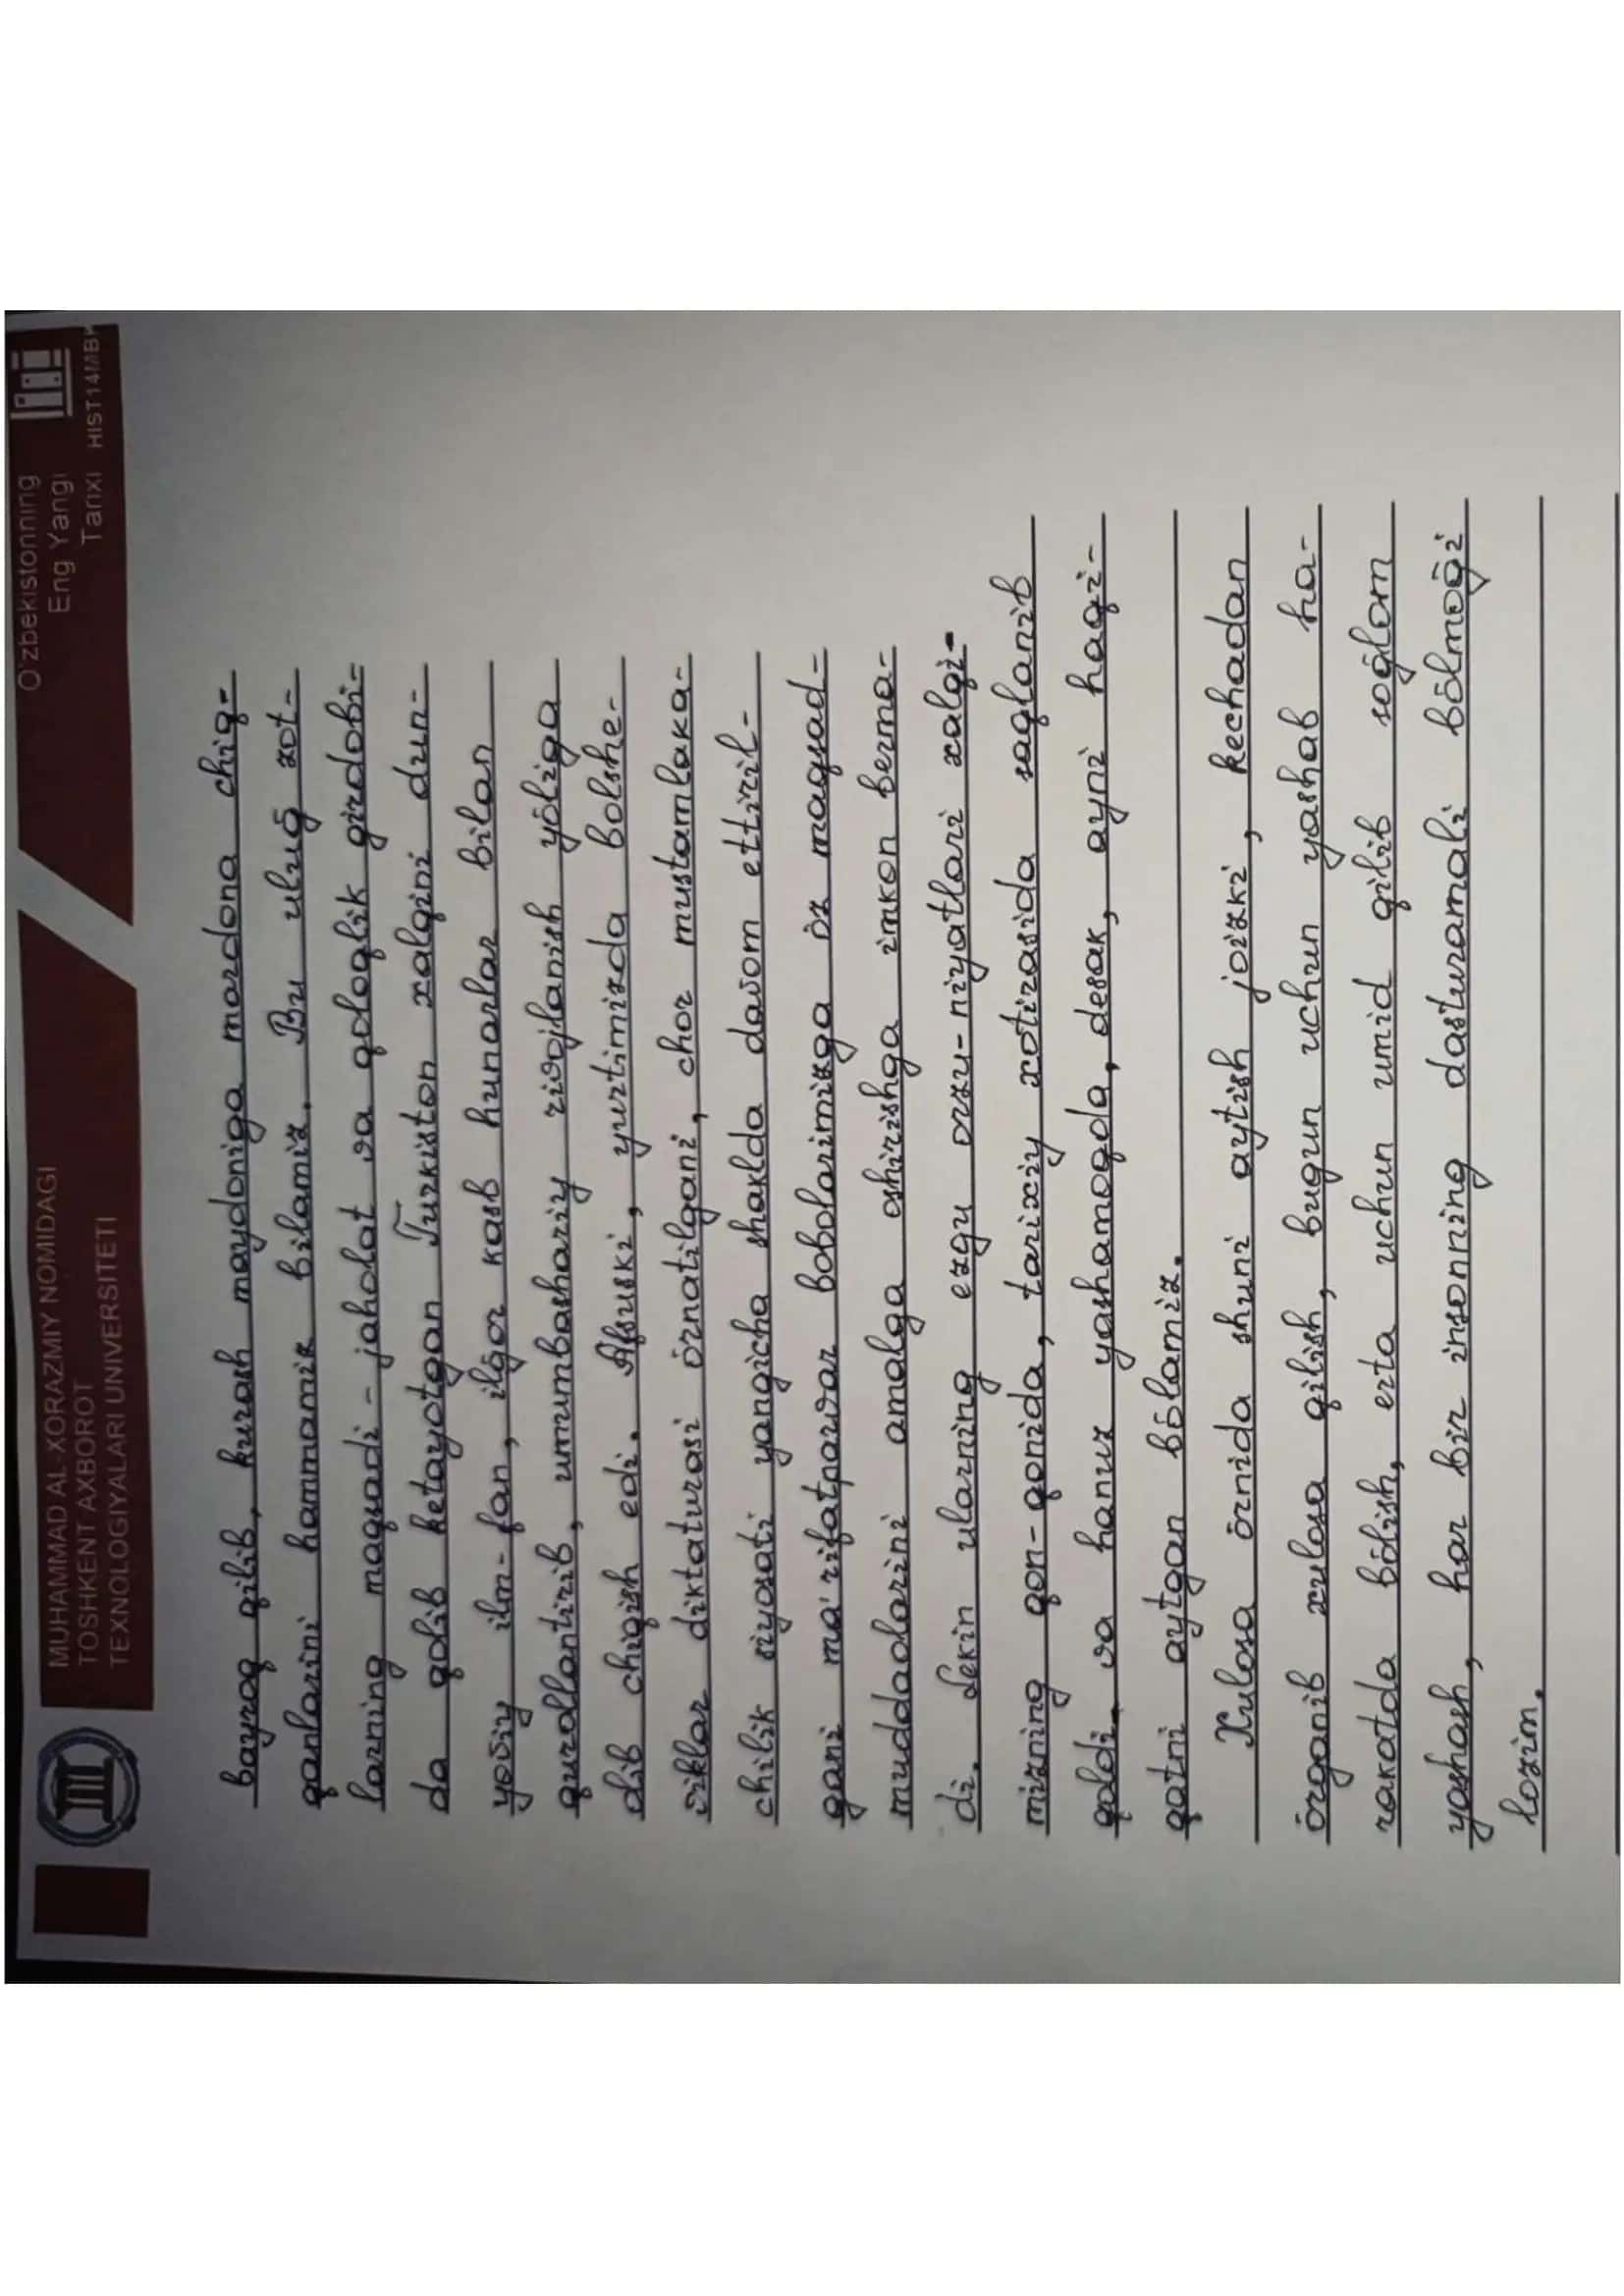 MUHAMMAD AL-XORAZMIY NOMIDAGI
TOSHKENT AXBOROT
TEXNOLOGIYALARI UNIVERSITETI
O'zbekistonning
Eng Yangi
Tarixi HIST14MBK
bayroq qilib, kurash maydoniga mardona chiq-
qanlarini hammamiz bilamiz. Bu uluğ zot-
larning maqsadi - jaholat va qoloqlik girdobi-
da qolib ketayotgan Turkiston xalqini dun-
yoviy ilm-fan, ilğor kasb hunarlar bilan
qurollantirib, umumbashariy rivojlanish yõliga
olib chiqish edi. Afsuski, yurtimizda bolshe-
viklar diktaturasi õrnatilgani, chor mustamlaka-
chilik siyosati yangicha shaklda davom ettiril-
gani ma'rifatparvar bobolarimizga õz maqsad-
muddaolarini amalga oshirishga imkon berma-
di. Lekin ularning ezgu orzu-niyatlari xalqi-
mizning qon-qonida, tarixiy xotirasida saqlanib
qoldi va hanuz yashamoqda, desak, ayni haqi-
qatni aytgan bõlamiz.
Xulosa õrnida shuni aytish joizki, kechadan
õrganib xulosa qilish, bugun uchun yashab ha-
rakatda bõlish, erta uchun umid qilib soğlom
yashash, har bir insonning dasturamali bõlmoği
lozim.